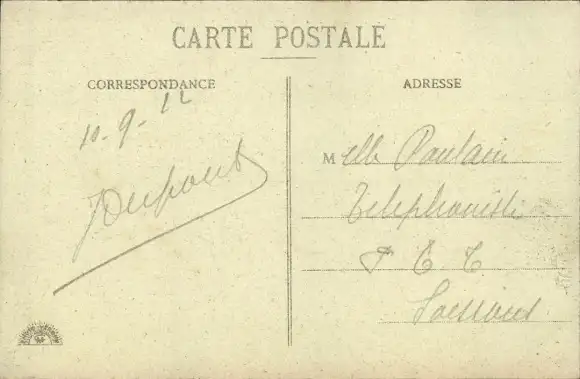 CARTE POSTALE
CORRESPONDANCE
10-9-12
JDupont
ADRESSE
Melle Poulain
Telephoniste
P T T
Soissons